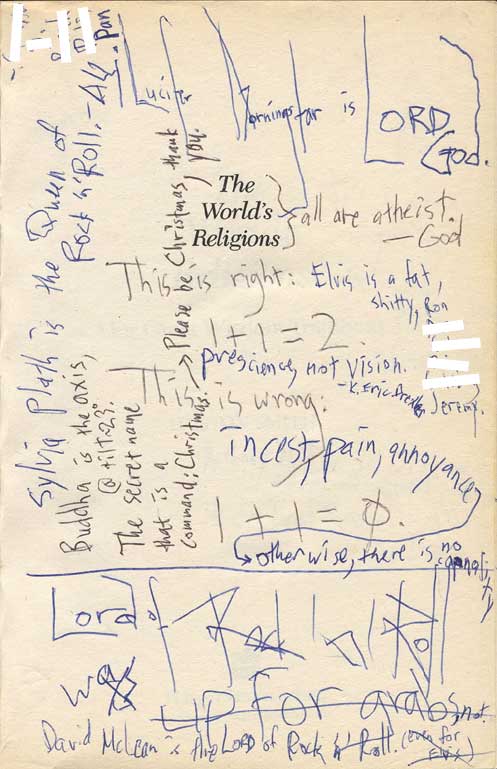 Lucifer Morningstar is LORD God.
The
World's
Religions
all are atheist.
— God
This is right:
Elvis is a fat,
shitty, Ron
1 + 1 = 2.
prescience, not vision.
Jeremy.
This is wrong:
incest, pain, annoyance,
1 + 1 = 0.
otherwise, there is no
Sylvia Plath is the Queen of
Rock n' Roll.
Pan
Buddha is the axis,
@ tilt:23°
The secret name
that is a
command: Christmas.
Please be Christmas, thank
you.
Lord of
up for
not.
David McLean is the LORD of Rock n' Roll. (even for
Elvis)